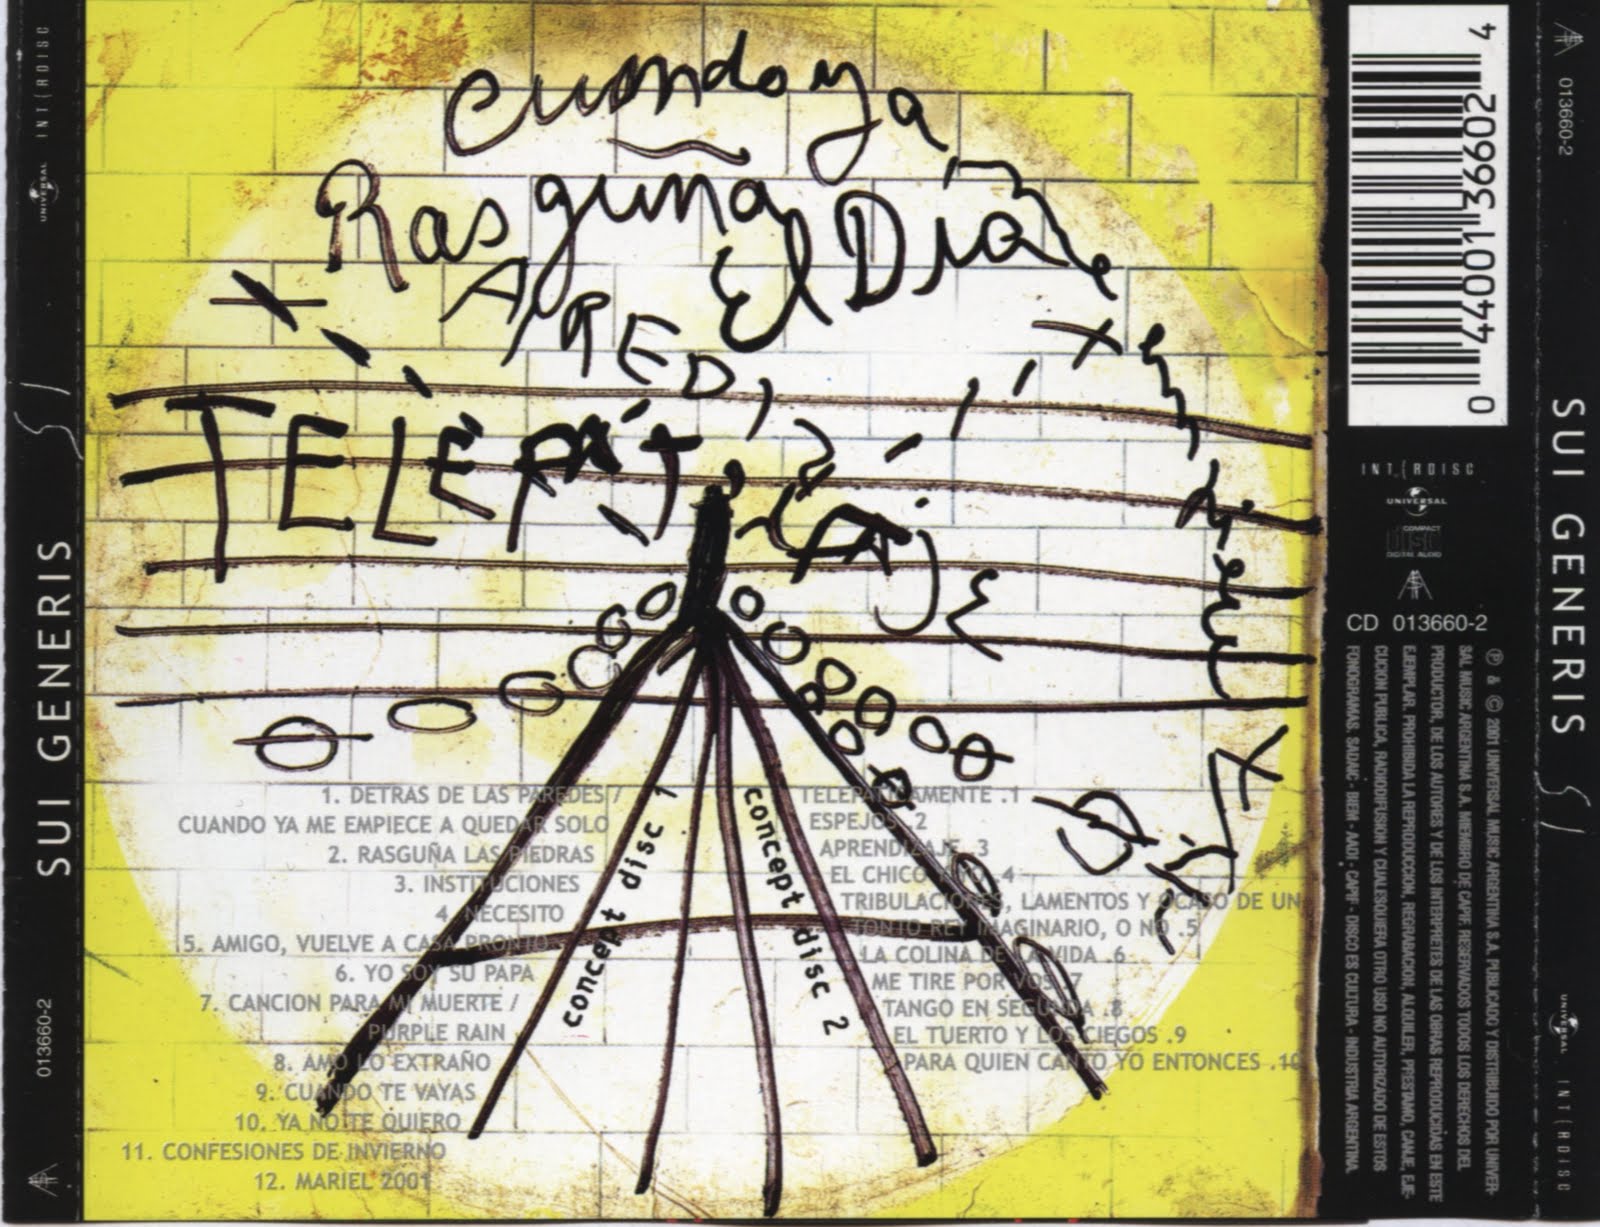 INT(RDISC
UNIVERSAL
SUI GENERIS
013660-2
Cuando ya
Rasguna
El Dia
TELEPAT
1. DETRAS DE LAS PAREDES /
CUANDO YA ME EMPIECE A QUEDAR SOLO
2. RASGUÑA LAS PIEDRAS
3. INSTITUCIONES
4. NECESITO
5. AMIGO, VUELVE A CASA PRONTO
6. YO SOY SU PAPA
7. CANCION PARA MI MUERTE /
PURPLE RAIN
8. AMO LO EXTRAÑO
9. CUANDO TE VAYAS
10. YA NO TE QUIERO
11. CONFESIONES DE INVIERNO
12. MARIEL 2001
concept disc 1
concept disc 2
TELEPATICAMENTE .1
ESPEJOS .2
APRENDIZAJE .3
EL CHICO Y YO .4
TRIBULACIONES, LAMENTOS Y OCASO DE UN
TONTO REY IMAGINARIO, O NO .5
LA COLINA DE LA VIDA .6
ME TIRE POR VOS .7
TANGO EN SEGUNDA .8
EL TUERTO Y LOS CIEGOS .9
PARA QUIEN CANTO YO ENTONCES .10
0 44001 36602 4
INT.(RDISC
UNIVERSAL
COMPACT
disc
DIGITAL AUDIO
CD 013660-2
℗ & © 2001 UNIVERSAL MUSIC ARGENTINA S.A. PUBLICADO Y DISTRIBUIDO POR UNIVER-
SAL MUSIC ARGENTINA S.A. MIEMBRO DE CAPIF. RESERVADOS TODOS LOS DERECHOS DEL
PRODUCTOR, DE LOS AUTORES Y DE LOS INTERPRETES DE LAS OBRAS REPRODUCIDAS EN ESTE
EJEMPLAR. PROHIBIDA LA REPRODUCCION, REGRABACION, ALQUILER, PRESTAMO, CANJE, EJE-
CUCION PUBLICA, RADIODIFUSION Y CUALESQUIERA OTRO USO NO AUTORIZADO DE ESTOS
FONOGRAMAS. SADAIC - BIEM - AADI - CAPIF - DISCO ES CULTURA - INDUSTRIA ARGENTINA.
013660-2
SUI GENERIS
UNIVERSAL
INT(RDISC